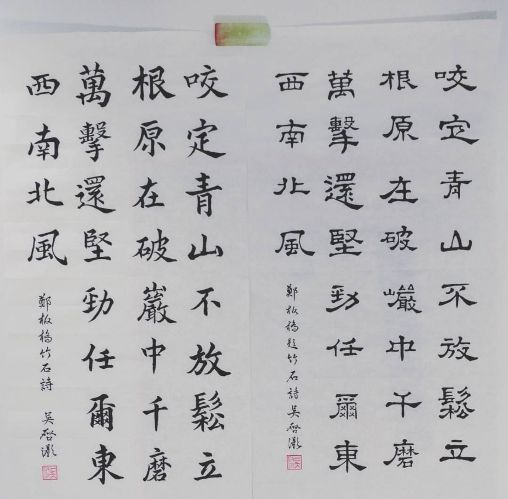 咬定青山不放鬆立
根原在破巗中千磨
萬擊還堅勁任爾東
西南北風
鄭板橋題竹石詩吳啓
咬定青山不放鬆立
根原在破巖中千磨
萬擊還堅勁任爾東
西南北風
鄭板橋竹石詩 吳啓